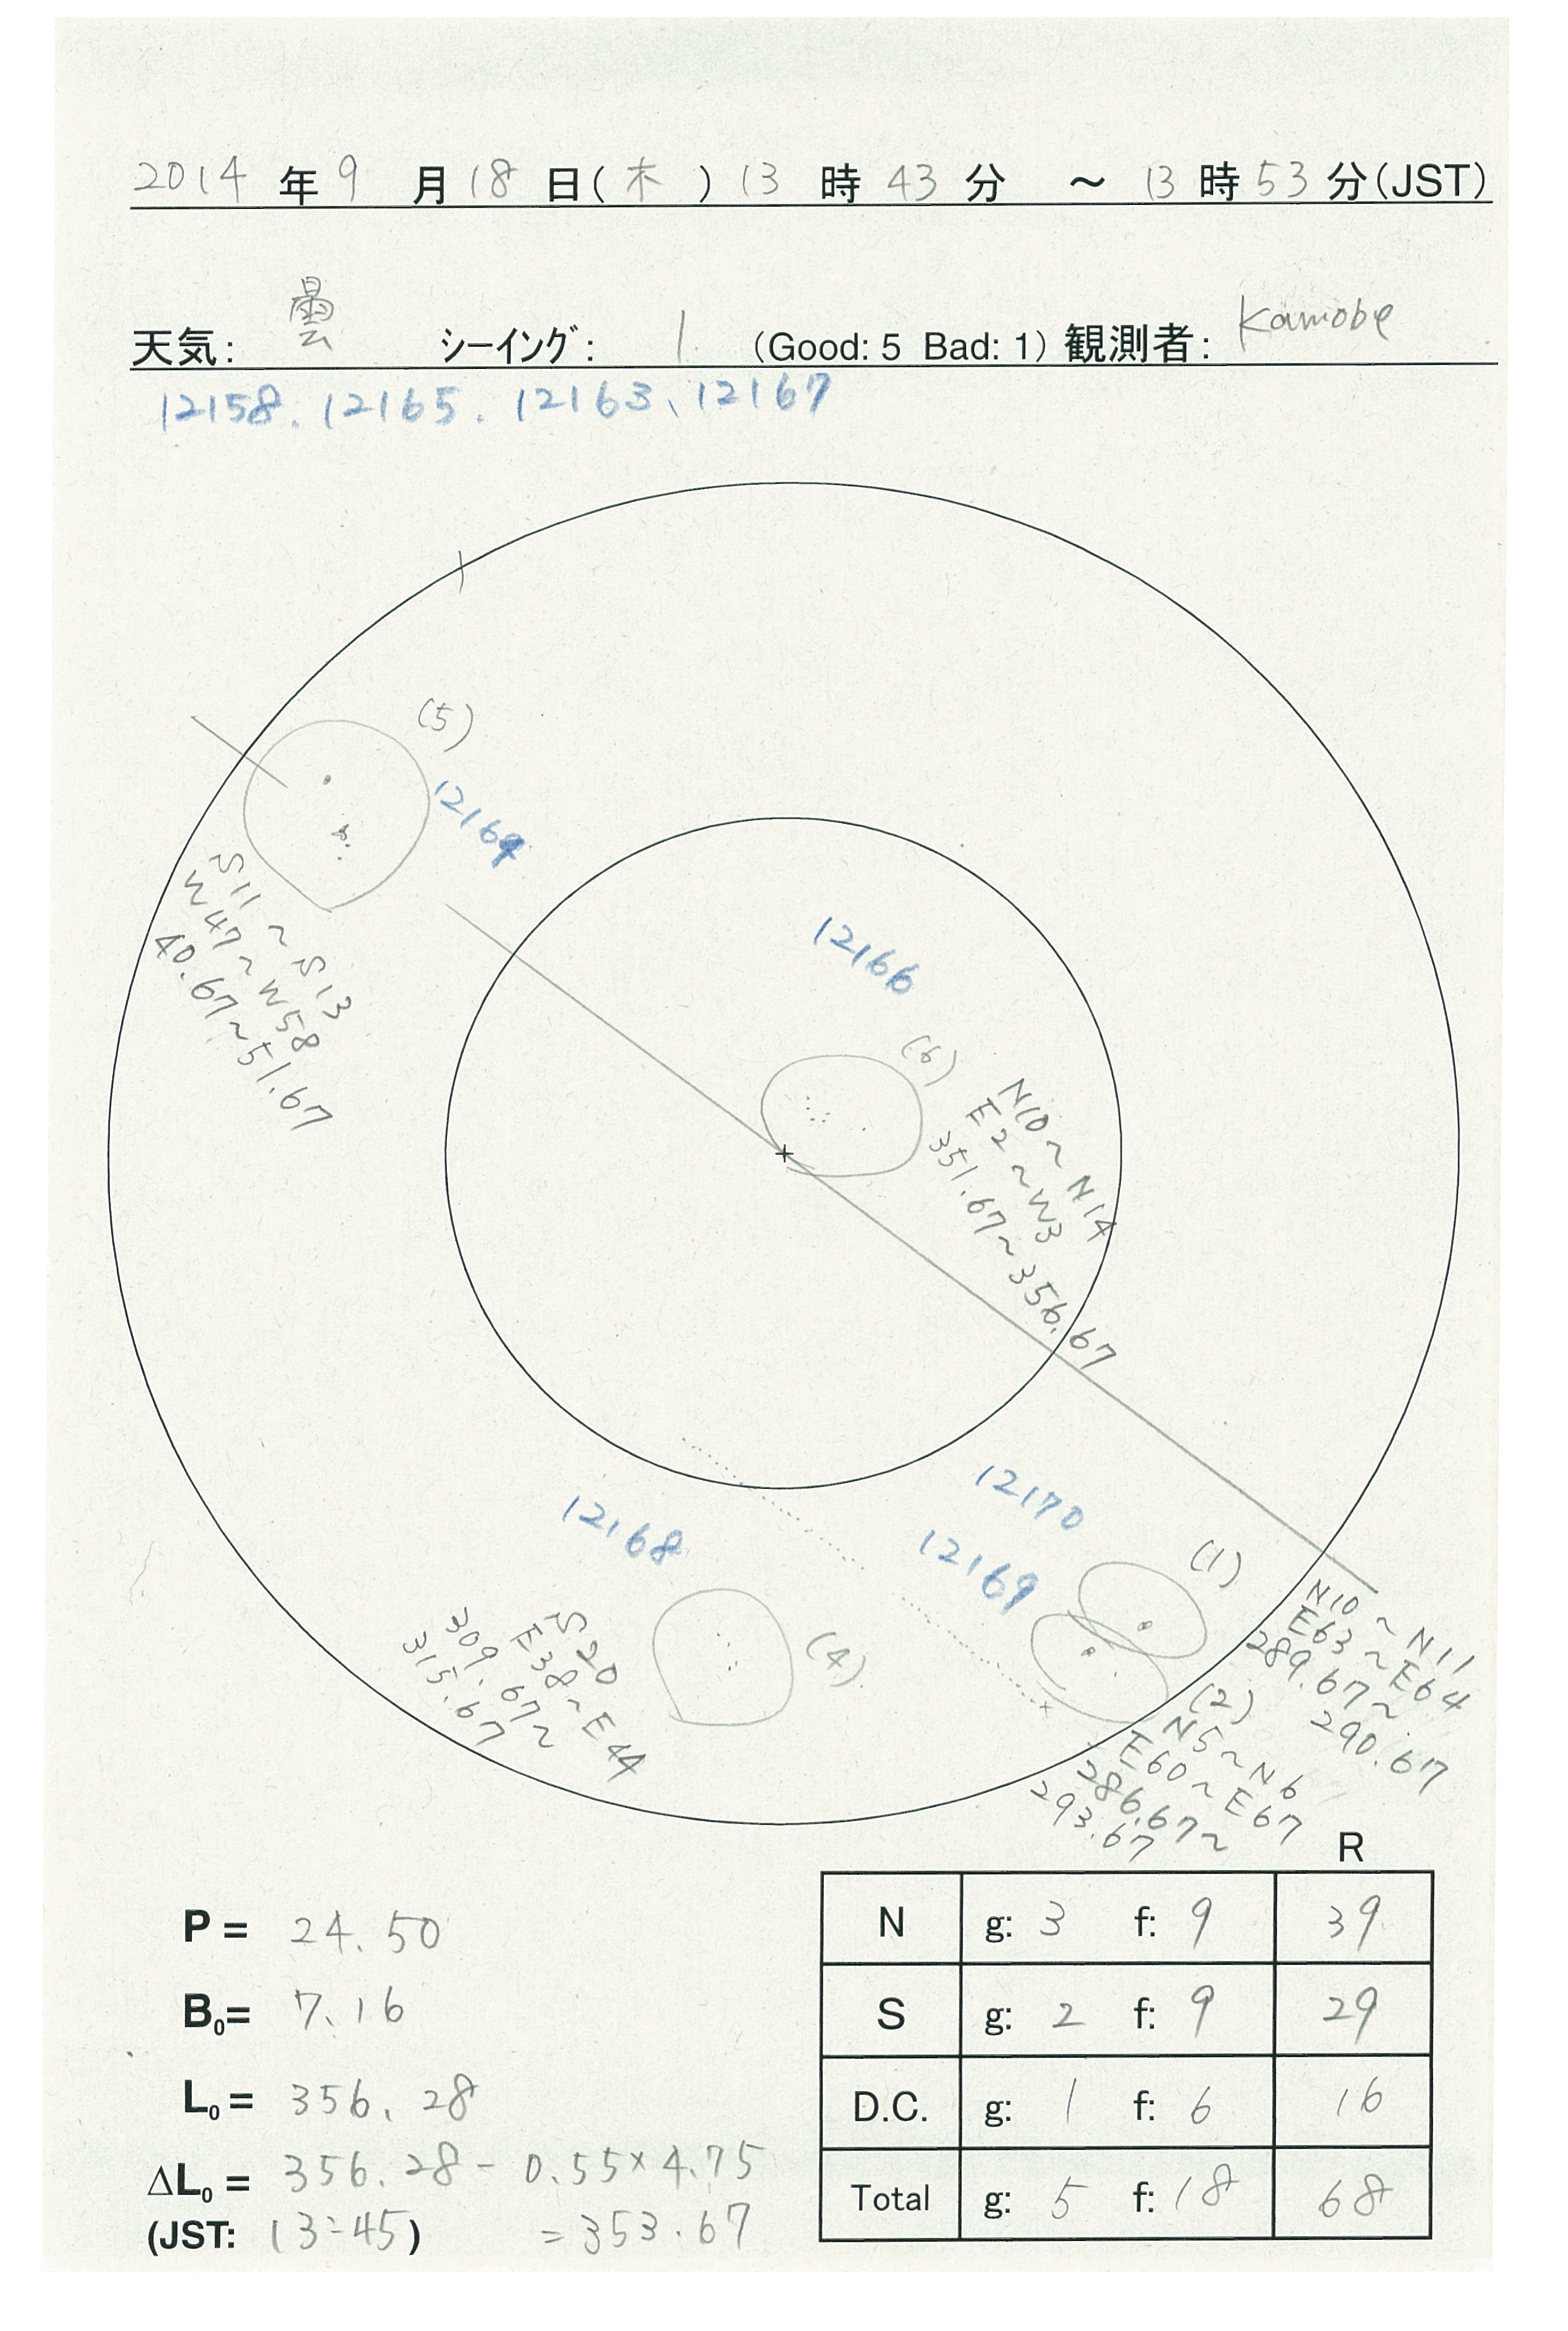 2014 年 9 月 18 日(木) 13 時 43 分 ~ 13 時 53 分(JST)
天気: 曇 シーイング: 1 (Good: 5 Bad: 1) 観測者: Kamobe
12158. 12165. 12163、12167
(5)
12164
S11~S13
W47~W58
40.67~51.67
12166
(6)
N10~N14
E2~W3
351.67~356.67
12170
12169
12168
(1)
N10~N11
E63~E64
289.67~
290.67
(2)
N5~N6
E60~E67
286.67~
293.67
(4)
S20
E38~E44
309.67~
315.67
R
N g: 3 f: 9 39
S g: 2 f: 9 29
D.C. g: 1 f: 6 16
Total g: 5 f: 18 68
P = 24.50
B₀= 7.16
L₀ = 356.28
ΔL₀ = 356.28 - 0.55×4.75
(JST: 13:45) =353.67